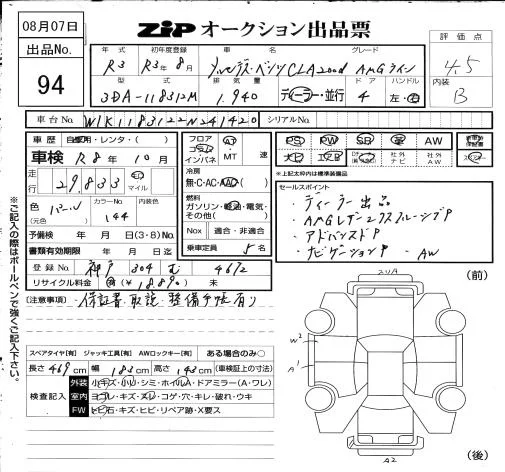 08月07日
ZiP オークション出品票
出品No.
94
評価点
4.5
内装
B
年式 初年度登録 車名 グレード
R3 R3年8月 メルセデス・ベンツCLA200d AMGライン
型式 排気量 ドア ハンドル
3DA-118312M 1.940 ディーラー・並行 4 左・右
車台No. W1K1183122N241420 シリアルNo.
車歴 自家用・レンタ・( )
車検 R8年10月
走行 29,833 km マイル
色 (元色) カラーNo. 144 内装色
予備検 年 月 日(3・8)No.
書類有効期限 年 月 日迄
登録No. 神戸 304 む 4672
リサイクル料金 有(¥18890) 未
フロア コラム インパネ AT MT 速
冷房 無・C・AC・AAC( )
燃料 ガソリン・軽油・電気・その他( )
Nox 適合・非適合
乗車定員 5名
PS PW SR AW
エアB 社外ナビ 社外AW
※上記太枠内は標準装備品
セールスポイント
・ディーラー出品
・AMGレザーエクスクルーシブP
・アドバンスドP
・ナビゲーションP ・AW
注意事項 ・保証書・取説・整備手帳有り
※ご記入の際はボールペンで強くご記入下さい。
スペアタイヤ【有】 ジャッキ工具【有】 AWロックキー【有】 ある場合のみ○
長さ 469cm 幅 183cm 高さ 143cm (車検証上の寸法)
検査記入
外装 小キズ・小凹・シミ・ホイルA・ドアミラー(A・ワレ)
室内 ヨゴレ・キズ・スレ・コゲ・穴・キレ・破れ・ウキ
FW ヒビ石・キズ・ヒビ・リペア跡・X要ス
(前)
W2
A1
A2
(後)